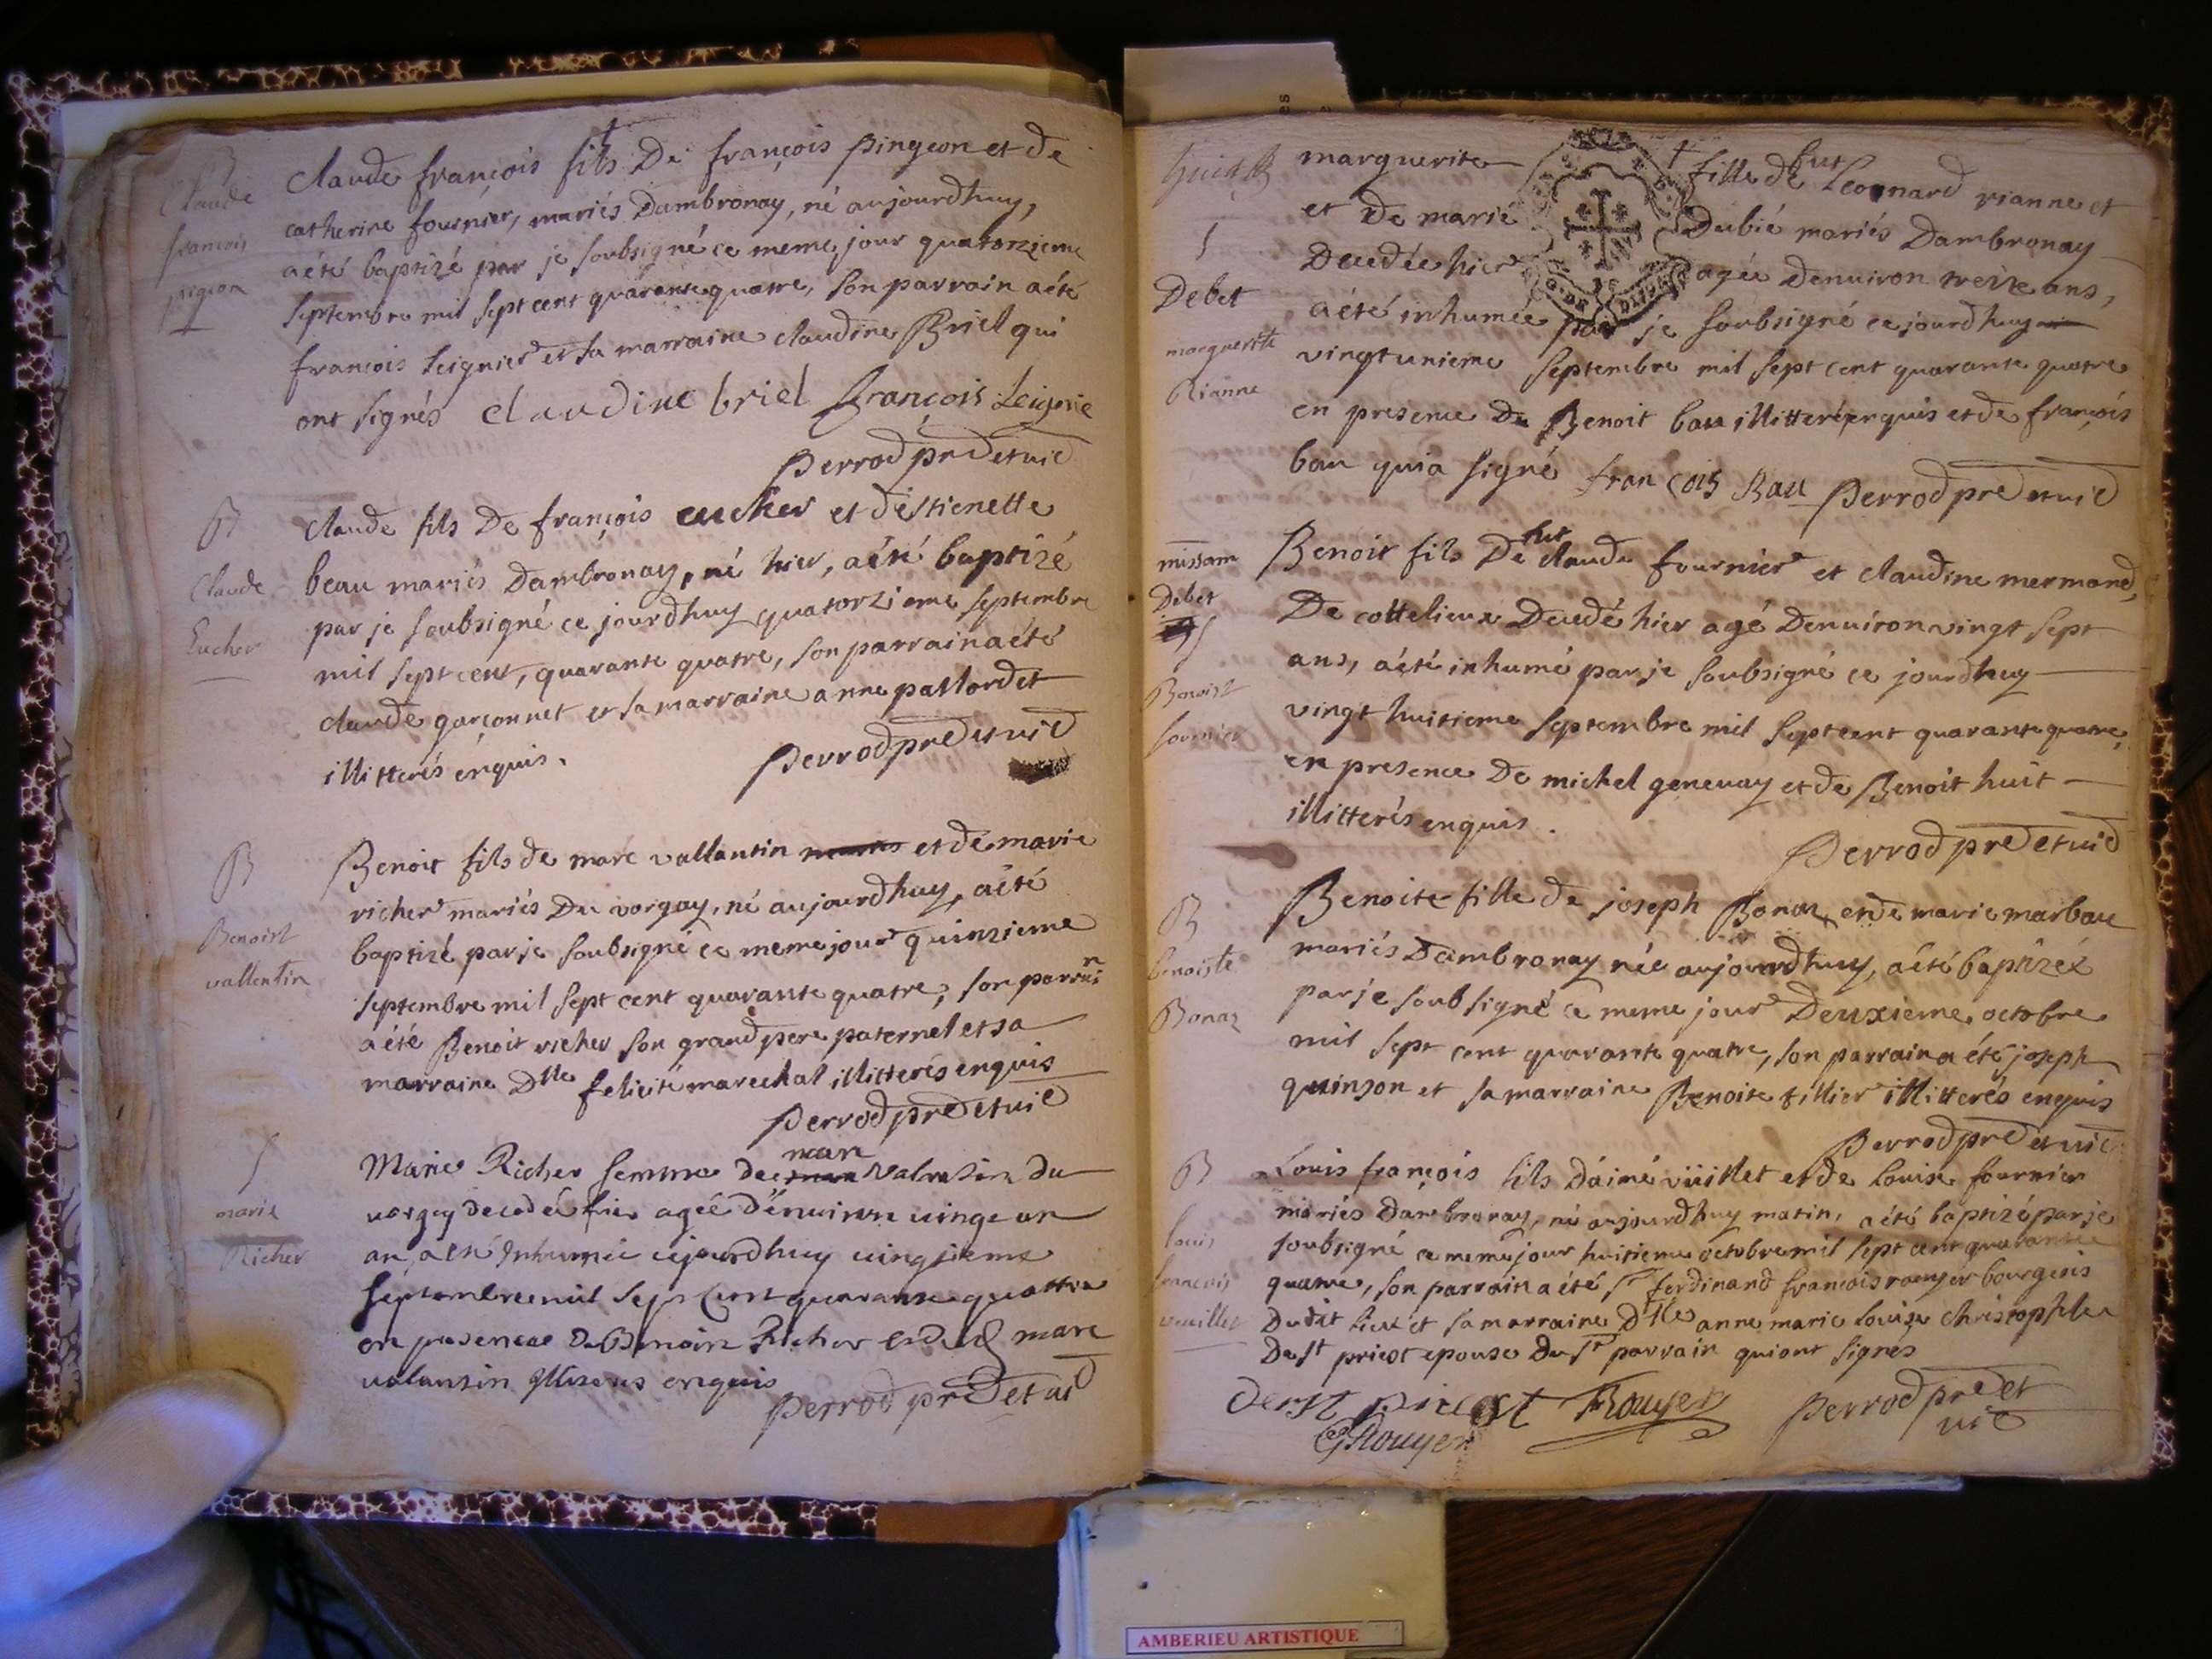 B
Claude
francois
pigeon
claude françois fils De françois pingeon et de
catherine fournier, mariés Dambronay, né aujourdhuy,
a été baptizé par je soubsigné ce meme jour quatorzieme
septembre mil sept cent quarante quatre, son parrain a été
françois Leignier et sa marraine claudine Briel qui
ont signés claudine briel françois Leignie
perrod pre et vic
B
Claude
Eucher
claude fils De françois eucher et destienette
beau mariés Dambronay, né hier, a été baptizé
par je soubsigné ce jourdhuy quatorzieme septembre
mil sept cent, quarante quatre, son parrain a été
claude garçonnet et sa marraine anne pallordet
illitterés enquis.
perrod pre et vic
B
Benoist
vallentin
Benoit fils de marc vallantin et de marie
richer mariés Du vorgay, né aujourdhuy, a été
baptizé par je soubsigné ce meme jour quinzieme
septembre mil sept cent quarante quatre, son parrain
a été Benoit richer son grand pere paternel et sa
marraine Dlle felicité marechal illitterés enquis
perrod pre et vic
S
marie
Richer
Marie Richer femme de marc valantin du
vorgey decedeé hier ageé d'enuiron uingt un
an, a esté Inhumeé cejourdhuy uingtieme
septembre mil sept cent quarante quattre
en presence de Benoit Richer et dud marc
valantin Illiterés enquis
perrod pre et vic
huict
S
Debet
marguerite
Rianne
marguerite fille de fut Leonard rianne et
et De marie Dubié mariés Dambronay
Decedée hier agée Denuiron treize ans,
a été inhumée par je soubsigné ce jourdhuy
vingt unieme septembre mil sept cent quarante quatre
en presence De Benoit bau illitteré enquis et de françois
bau qui a signé francois Bau perrod pre et vic
missam
Debet
S
Benoist
fournier
Benoit fils De fut claude fournier et claudine mermand,
De cottelieux Decedé hier agé Denuiron vingt sept
ans, a été inhumé par je soubsigné ce jourdhuy
vingt huitieme septembre mil sept cent quarante quatre,
en presence De michel genevay et de Benoit huit
illitterés enquis.
perrod pre et vic
B
benoiste
Bonaz
Benoite fille de joseph Bonaz, et de marie marbau
mariés Dambronay née aujourdhuy, a été baptizeé
par je soubsigné ce meme jour Deuxieme octobre
mil sept cent quarante quatre, son parrain a été joseph
quinson et sa marraine Benoite tillier illitterés enquis
perrod pre et vic
B
louis
francois
vuillet
Louis françois fils D'aimé vüillet et de Louise fournier
mariés Dambronay, né aujourdhuy matin, a été baptizé par je
soubsigné ce meme jour huitieme octobre mil sept cent quarante
quatre, son parrain a été Sr ferdinand françois rouyer bourgeois
Dudit lieu et sa marraine Dlle anne marie louise christophle
De St priest epouse du Sr parrain qui ont signés
De St priest Rouyer perrod pre et
Rouyer vic
AMBERIEU ARTISTIQUE